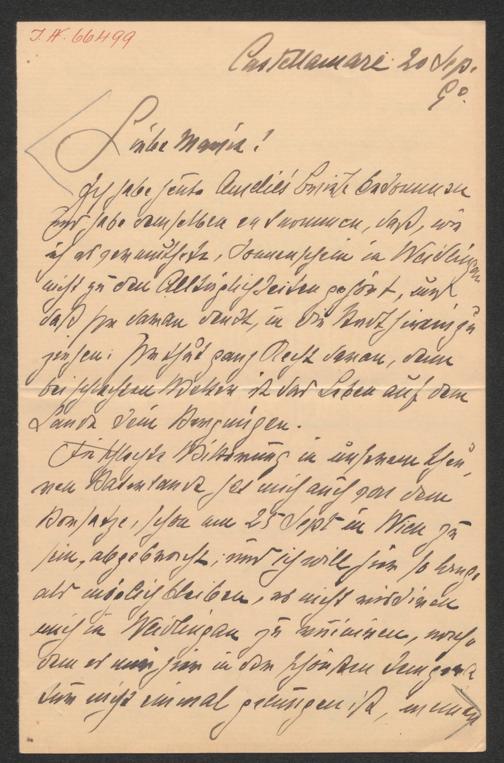 I.N. 66499
Castellamare 20 Sep.
90.
Liebe Marie!
Ich habe heute Amelies Briefe bekommen
und habe demselben entnommen, daß, wie
ich es vermuthete, Sonnenschein in Weidlingau
nicht zu den Alltäglichkeiten gehört, und
daß Ihr daran denkt, in die Stadt hineinzu
ziehen; Ihr thut ganz Recht daran, denn
bei schlechtem Wetter ist das Leben auf dem
Lande kein Vergnügen.
Die schlechte Witterung in unserem theu-
ren Vaterlande hat mich auch von dem
Vorsatze, schon am 25 Sept in Wien zu
sein, abgebracht; und ich will hier so lange
als möglich bleiben, es nicht
mich in Weidlingau zu ruiniren, nach-
dem es mir hier in der schönsten
nicht einmal gelungen ist, meinen